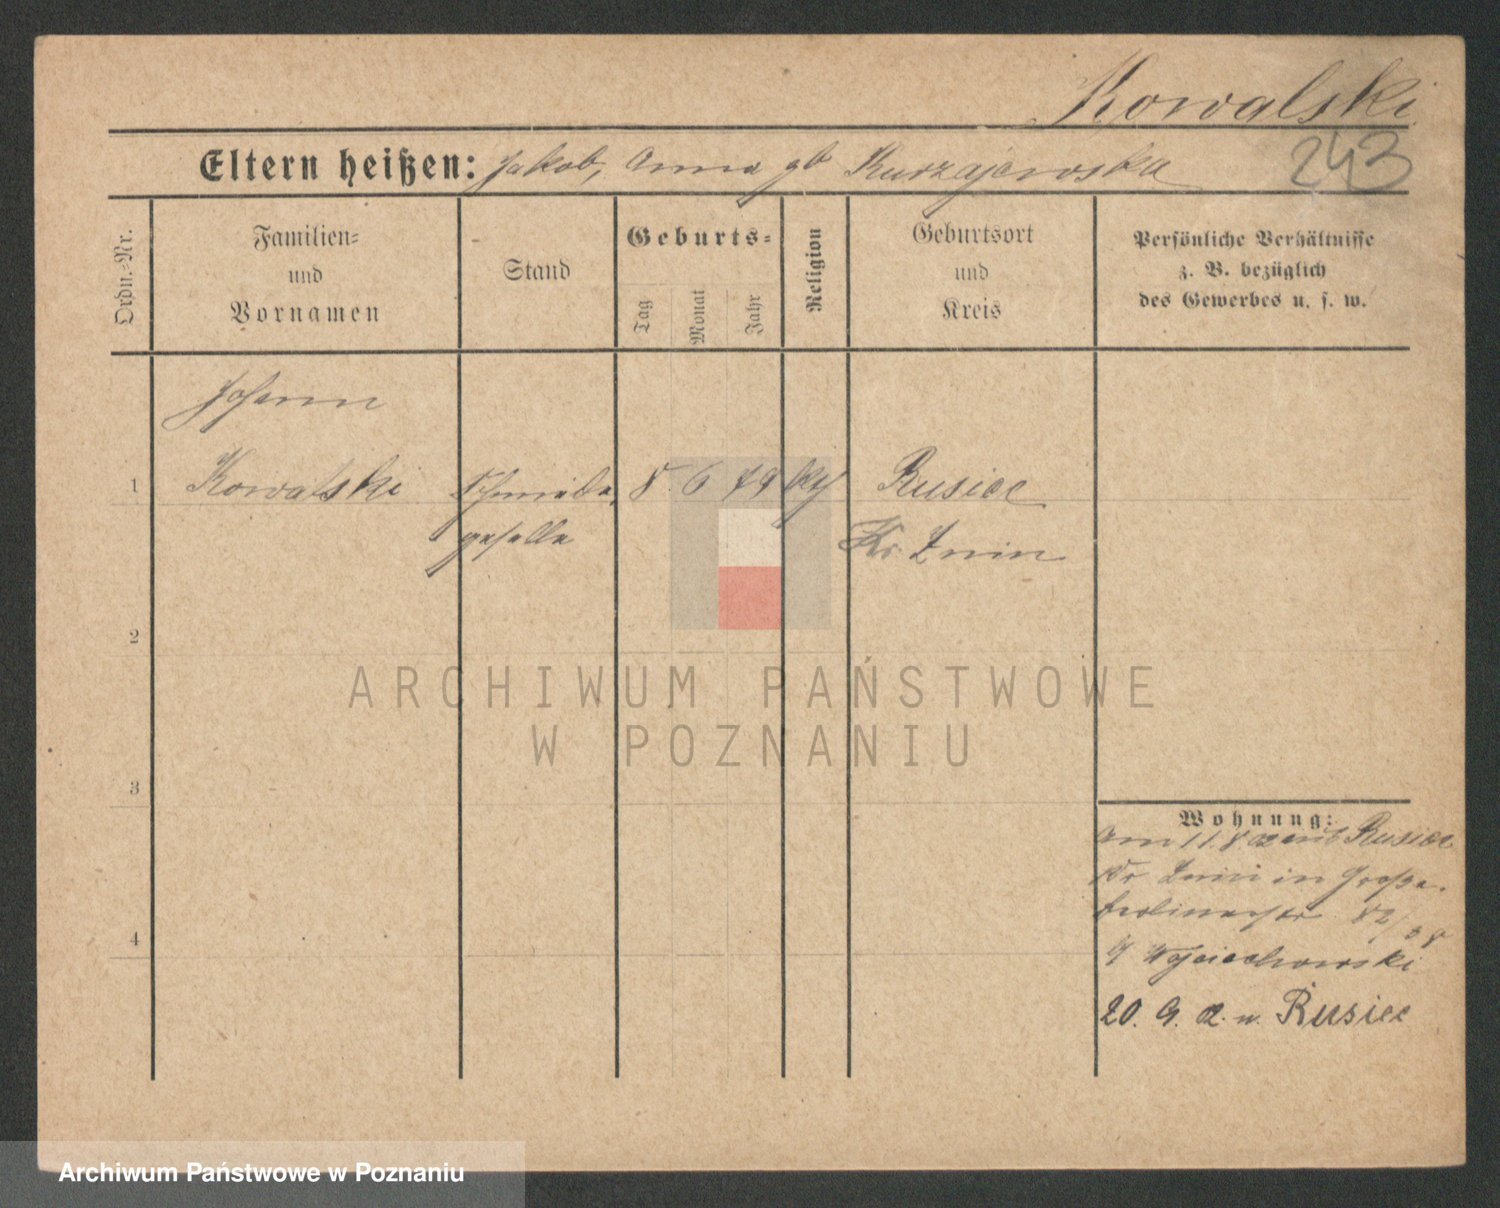 Kowalski
243
Eltern heißen: Jakob, Anna gb Kurzajewska
Ordn.=Nr.
Familien= und Vornamen
Stand
Geburts=
Tag
Monat
Jahr
Religion
Geburtsort und Kreis
Persönliche Verhältnisse
z. B. bezüglich
des Gewerbes u. s. w.
Johann
1 Kowalski Schmiede 8. 6 79 Rusiec
geselle Kr. Znin
2
3
4
Wohnung:
Am 11.8 02 aus Rusiec
Kr Znin in Große
Berlinerstr. 82/88
Wojciechowski
20. 9. 02. n. Rusiec
ARCHIWUM PAŃSTWOWE
W POZNANIU
Archiwum Państwowe w Poznaniu